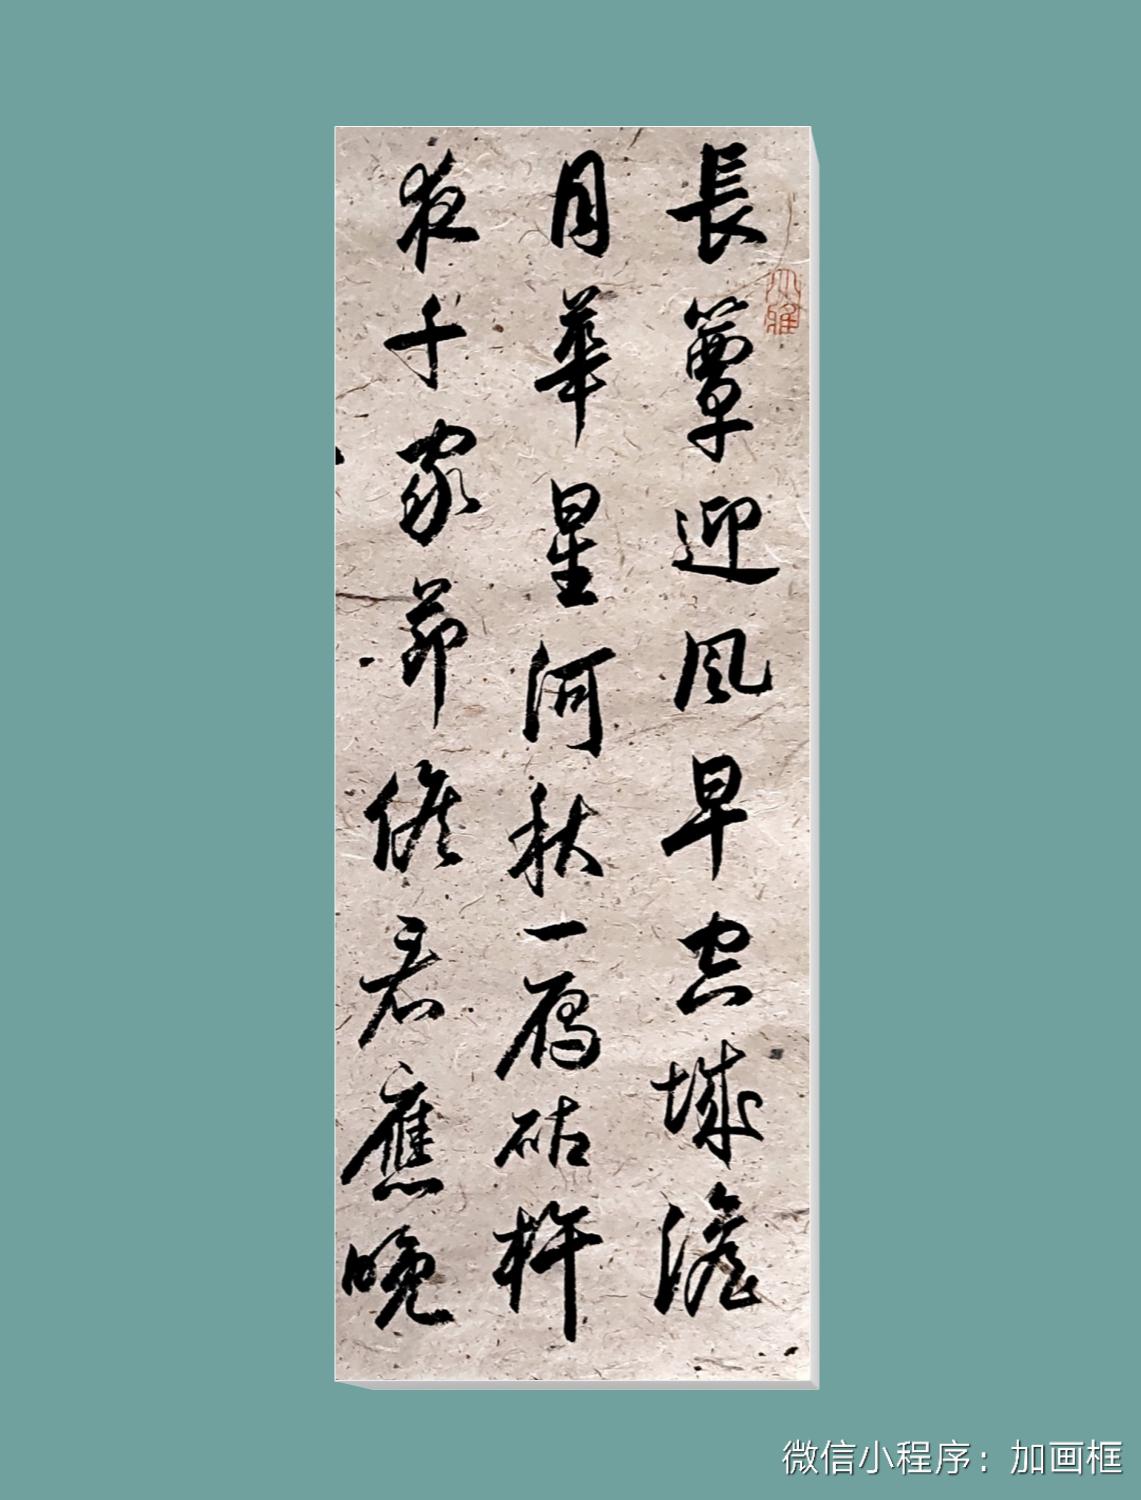 長簟迎風早空城澹
月華星河秋一鴈砧杵
夜千家節候看應晚
微信小程序：加画框